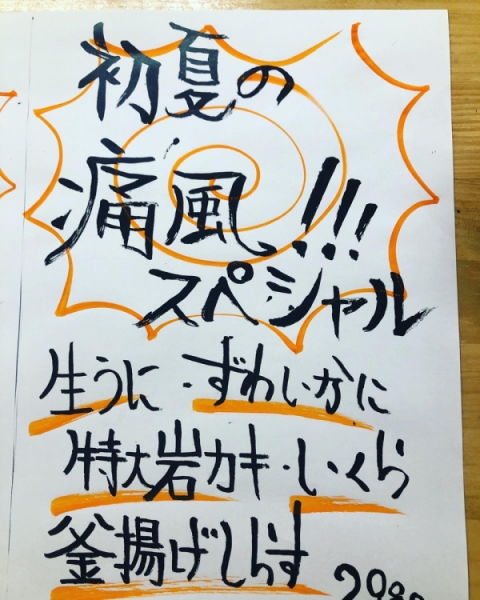 初夏の
痛風!!!
スペシャル
生うに・ずわいかに
特大岩カキ・いくら
釜揚げしらす